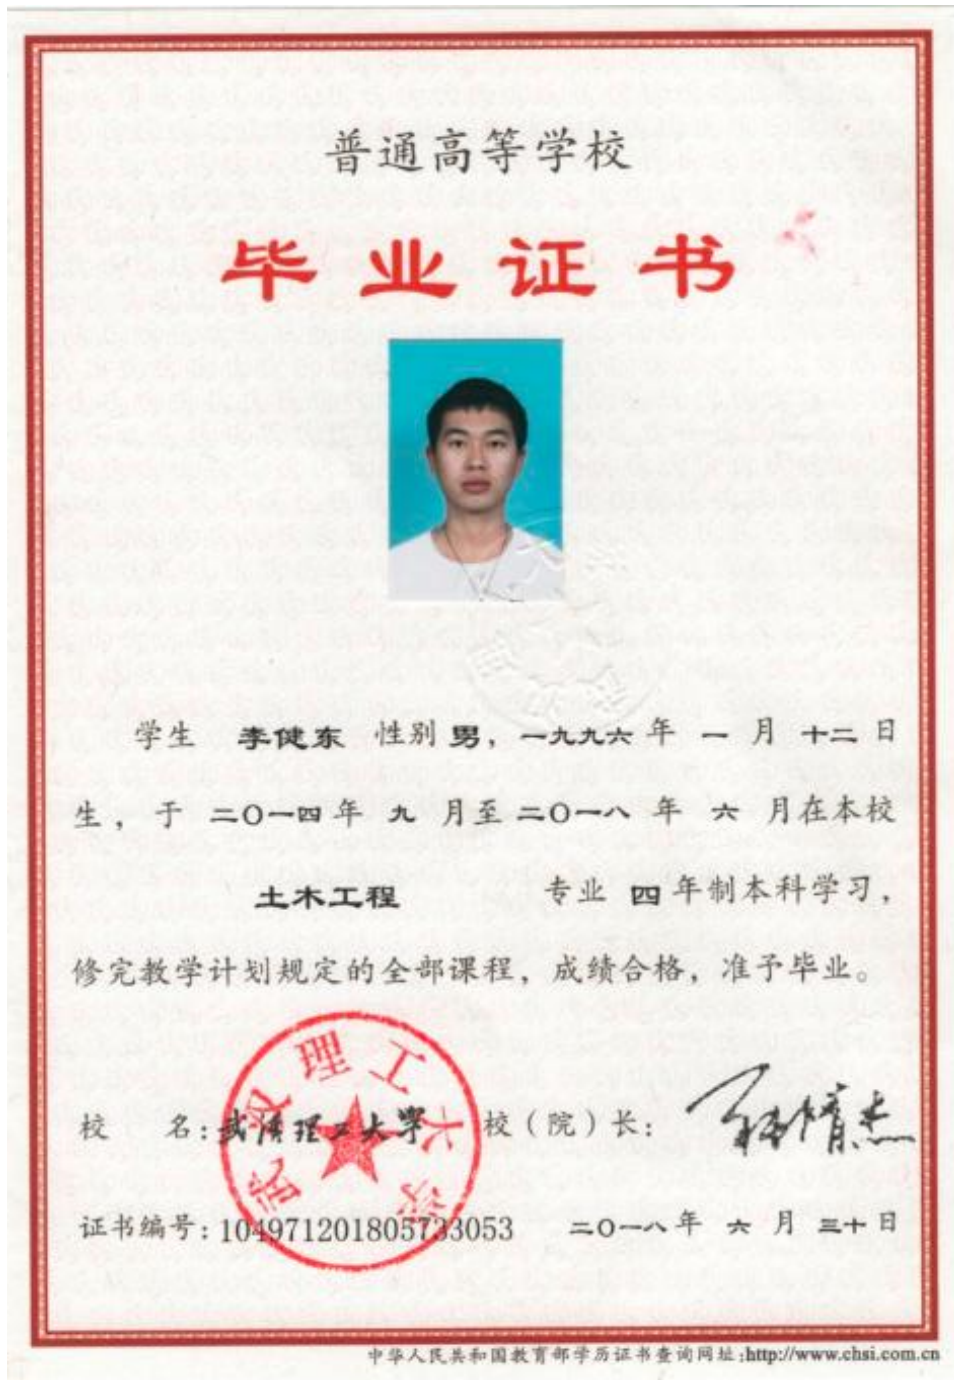 普通高等学校
毕业证书
学生 李健东 性别 男，一九九六年 一 月 十二日
生，于 二〇一四年 九 月至二〇一八年 六 月在本校
土木工程 专业 四年制本科学习，
修完教学计划规定的全部课程，成绩合格，准予毕业。
武汉理工大学
校 名：武汉理工大学 校（院）长：
证书编号：104971201805733053 二〇一八年 六 月 三十日
中华人民共和国教育部学历证书查询网址:http://www.chsi.com.cn